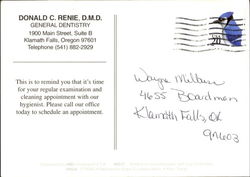 DONALD C. RENIE, D.M.D.
GENERAL DENTISTRY
1900 Main Street, Suite B
Klamath Falls, Oregon 97601
Telephone (541) 882-2929
This is to remind you that it's time
for your regular examination and
cleaning appointment with our
hygienist. Please call our office
today to schedule an appointment.
20
Wayne
4655 Boardman
Klamath Falls, OR
97603